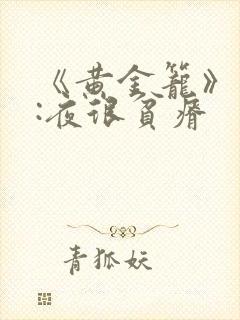 《黄金籠》
:夜很貧瘠
青狐妖